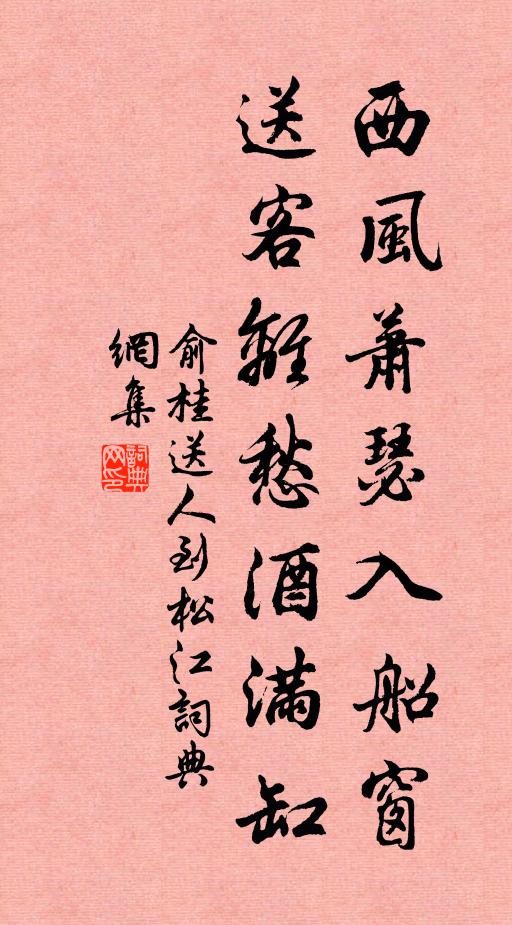 西風蕭瑟入船窗
送客離愁酒滿缸
俞桂送人到松江詞典
網集
詞典
网印